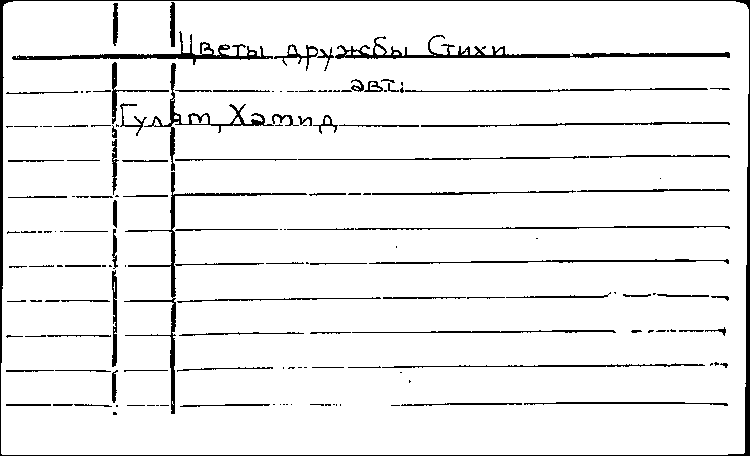 Цветы дружбы Стихи
авт:
Гулям, Хамид